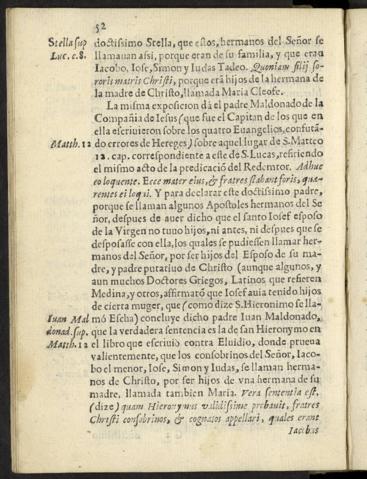 52
Stella sup doctissimo Stella, que estos, hermanos del Señor se
Luc. c.8. llamauan assi, porque eran de su familia, y que eran
Iacobo, Iose, Simon y Iudas Tadeo. Quoniam filij so-
roris matris Christi, porque erã hijos de la hermana de
la madre de Christo, llamada Maria Cleofe.
La misma exposicion dà el padre Maldonado de la
Compañia de Iesus (que fue el Capitan de los que en
ella escriuieron sobre los quatro Euangelios, confutã-
Matth. 12 do errores de Hereges) sobre aquel lugar de S. Matteo
12. cap. correspondiente a este de S. Lucas, refiriendo
el mismo acto de la predicació del Redemtor. Adhuc
eo loquente. Ecce mater eius, & fratres stabant foris, quæ-
rentes ei loqui. Y para declarar este doctissimo padre,
porque se llaman algunos Apostoles hermanos del Se
ñor, despues de auer dicho que el santo Iosef esposo
de la Virgen no tuuo hijos, ni antes, ni despues que se
desposasse con ella, los quales se pudiessen llamar her-
manos del Señor, por ser hijos del Esposo de su ma-
dre, y padre putatiuo de Christo (aunque algunos, y
aun muchos Doctores Griegos, Latinos que refieren
Medina, y otros, affirmarõ que Iosef auia tenido hijos
de cierta muger, que (como dize S. Hieronimo se lla-
Iuan Mal mó Escha) concluye dicho padre Iuan Maldonado,
donad. sup. que la verdadera sentencia es la de san Hieronymo en
Matth. 12 el libro que escriuiò contra Eluidio, donde prueua
valientemente, que los consobrinos del Señor, Iaco-
bo el menor, Iose, Simon y Iudas, se llaman herma-
nos de Christo, por ser hijos de vna hermana de su
madre, llamada tambien Maria. Vera sententia est,
(dize) quam Hieronymus validissime probauit, fratres
Christi consobrinos, & cognatos appellari, quales erant
Iacobus